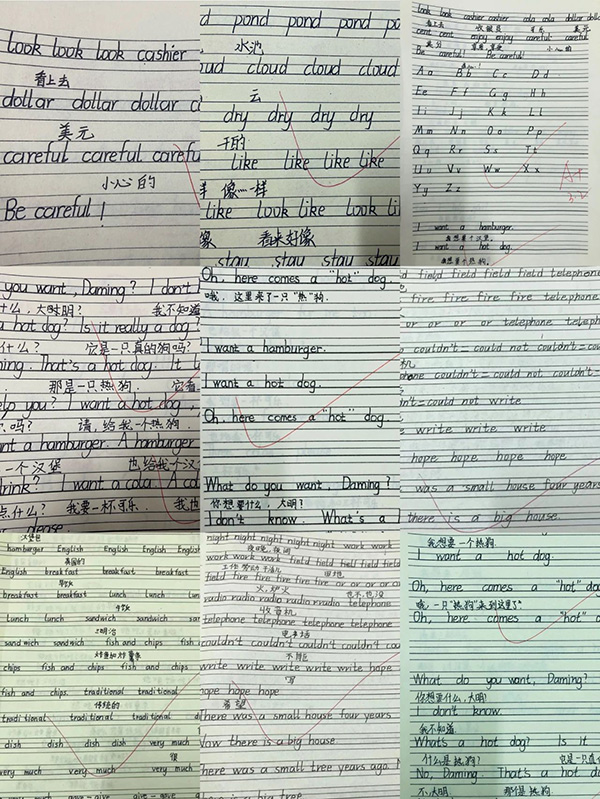 look look look cashier
看上去
dollar dollar dollar
美元
careful careful
小心的
Be careful!
pond pond pond pond
水池
cloud cloud cloud
云
dry dry dry dry
干的
like like like like
像一样
like look like look
看来好像
stay stay stay
look look cashier cashier cola cola dollar
看上去 收银员 美元
cent cent enjoy enjoy careful careful
小心的
Be careful! Be careful!
Aa Bb Cc Dd
Ee Ff Gg Hh
Ii Jj Kk Ll
Mm Nn Oo Pp
Qq Rr Ss Tt
Uu Vv Ww Xx
Yy Zz
A+
I want a hamburger.
我想要个汉堡.
I want a hot dog.
我想要个热狗.
you want, Daming? I don't
什么,大明? 我不知道
a hot dog? Is it really a dog?
什么? 它是一只真的狗吗?
That's a hot dog. It
那是一只热狗. 它看
help you? I want a hot dog,
吗? 请,给我一个热狗
want a hamburger. A hamburger
一个汉堡 也给我一个汉
drink? I want a cola. A col
点什么? 我要一杯可乐. 我也
Oh, here comes a "hot" dog.
哦, 这里来了一只"热"狗.
I want a hamburger.
I want a hot dog.
Oh, here comes a "hot" dog.
What do you want, Daming?
你想要什么,大明?
I don't know. What's a
field field field field telephone
fire fire fire fire telephone
or or or or telephone telephone
couldn't=could not couldn't=co
couldn't=could not couldn't=
couldn't=could not write
write write write
hope hope hope hope
was a small house four years
there is a big house.
hamburger English English English
英国的
English breakfast breakfast
早餐
breakfast breakfast lunch lunch
午餐
lunch lunch sandwich sandwich
三明治
sandwich sandwich fish and chips
炸鱼加炸薯条
chips fish and chips fish and chips
fish and chips traditional traditional
传统的
traditional traditional traditional
dish dish dish very much
很
very much very much very much
gave-give give-gave
night night night night night work work
夜晚,夜间
work work work field field field field
工作,劳动,干活儿 田地
field fire fire fire fire or or or or
火,炉火 也不,也没
radio radio radio radio telephone
收音机
telephone telephone telephone telephone
电话
couldn't couldn't couldn't couldn't cou
不能
write write write write write hope
写
hope hope hope
希望
There was a small house four years
Now there is a big house
There was a small tree years ago.
is a big tree.
我想要一个热狗.
I want a hot dog.
Oh, here comes a "hot" dog
哦,一只"热狗"来到这里了
Oh, here comes a "hot" d
What do you want, Daming?
你想要什么,大明?
I don't know.
我不知道.
What's a hot dog? Is it
什么是热狗? 它是一只真
No, Daming. That's a hot d
不,大明. 那是热狗.